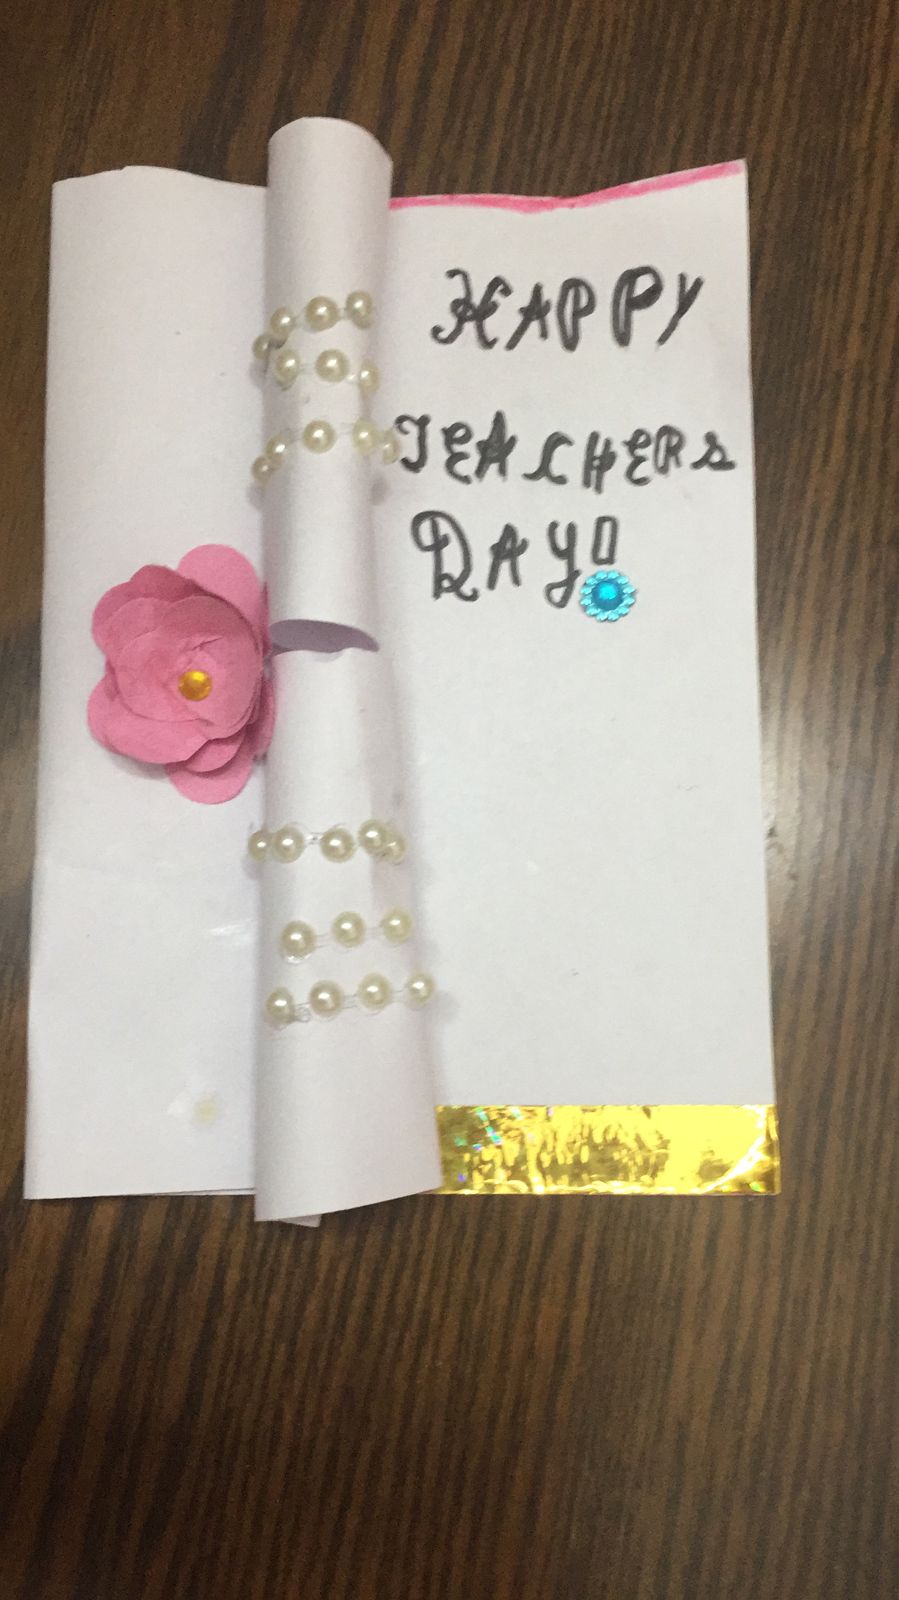 HAPPY
TEACHERS
DAY!